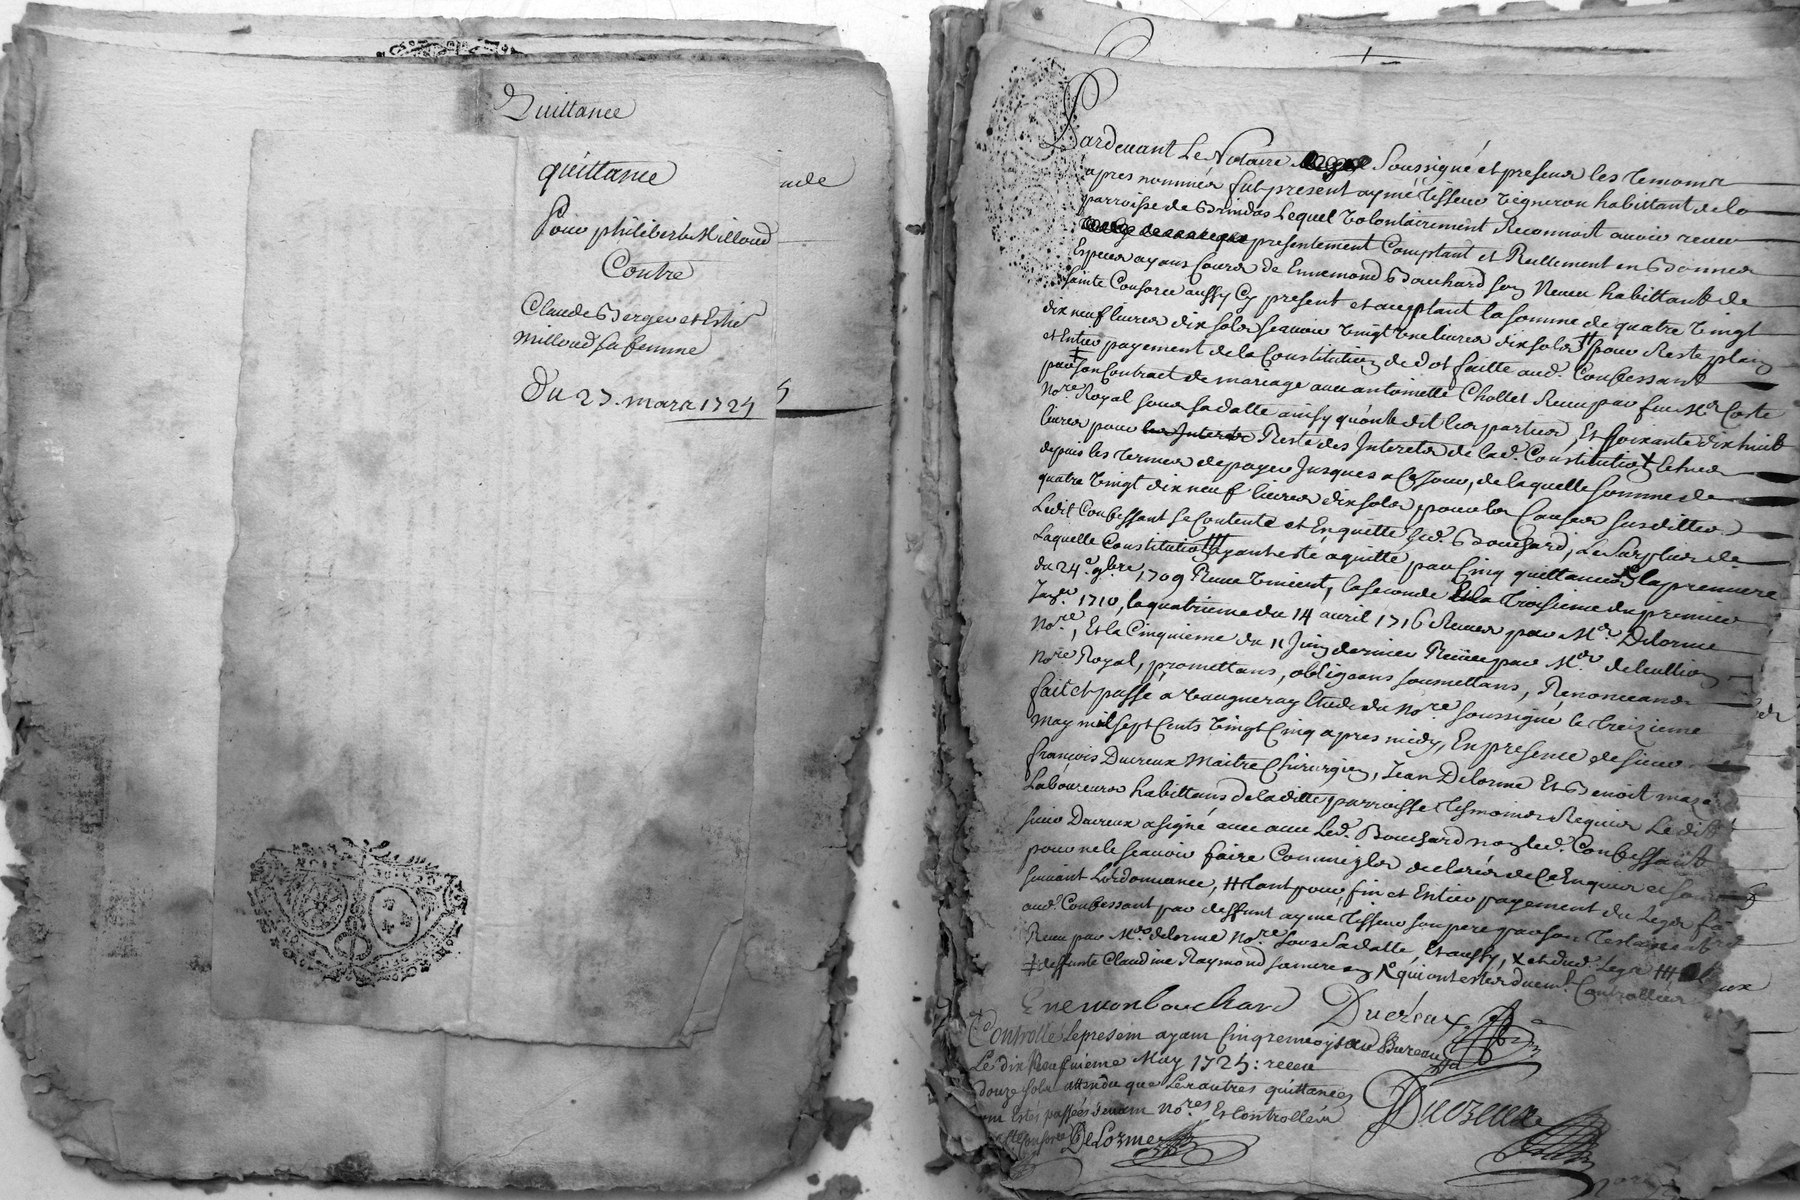 Quittance
quittance
Pour philibert Milloud
Contre
Claude Berger et
Milloud sa femme
Du 27. mars 1725
Pardevant Le Notaire Soussigné et presens les temoins
apres nommés fut present aymé Tisseur vigneron habittant de la
parroisse de Brindas Lequel volontairement Reconnoit avoir receu
presentement Comptant et Reellement en Bonnes
Especes ayans Cours de Ennemond Bouchard son Neveu habittant de
Sainte Consorce aussy Cy present et acceptant la somme de quatre vingt
dix neuf livres dix sols scavoir vingt une livres dix sols pour Reste plain
et Entier payement de la Constitution de dot faitte aud. Confessant
par son Contract de mariage avec antoinette Chollet Receu par feu Me Coste
Nore. Royal sous sa datte ainsy qu'ont dit les parties, Et soixante dix huit
livres pour les Interets Reste des Interets de lad. Constitution Echues
depuis les termes de payer Jusques a Ce Jour, de laquelle somme de
quatre vingt dix neuf livres dix sols, pour les Causes susdittes
Ledit Confessant se Contente et En quitte led. Bouchard, Le Surplus de
Laquelle Constitution ayant esté aquitté par Cinq quittances la premiere
du 24e. 9bre. 1709 la seconde la Troisieme du premier
1710, la quatrieme du 14 avril 1716 Receues par Me. Delorme
Nore., Et la Cinquieme du 11 Juin dernier Receue par Me. de
Nore Royal, promettans, obligeans soumettans, Renonceans
fait et passé a Vaugneray Etude du Nore. soussigné le treizieme
may mil sept Cents vingt Cinq apres midy, En presence de sieur
françois Ducreux Maitre Chirurgien, Jean Delorme Et Benoit
Laboureurs habittans de laditte parroisse Tesmoins Requis Ledit
sieur Ducreux a signé avec led. Bouchard non led. Confessant
pour ne le scavoir faire Comme declarés de Ce Enquis et
suivant Lordonnance, # tant pour fin et Entier payement du Legat
aud. Confessant par deffunt aymé Tisseur son pere par son Testament
Receu par Me. delorme Nore. sous sa datte, Et aussy, X et dud. Legat
‡ deffunte Claudine Raymond sa mere qui ont estés duem. Controllées
Enemon bouchard Ducreux
Controlle Le present ayant au Bureau
Le dix Neufvieme May 1725: receu
douze sols attendu que Les autres quittances
ont Estés passées devant Nores Et Controllées
Delorme
Ducreux